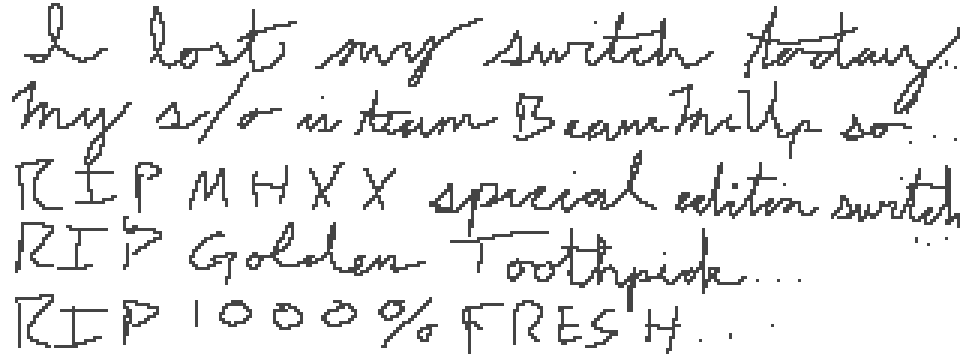 I lost my switch today...
My s/o is team BeamMeUp so...
RIP MHXX special edition switch...
RIP Golden Toothpick...
RIP 1000% FRESH...